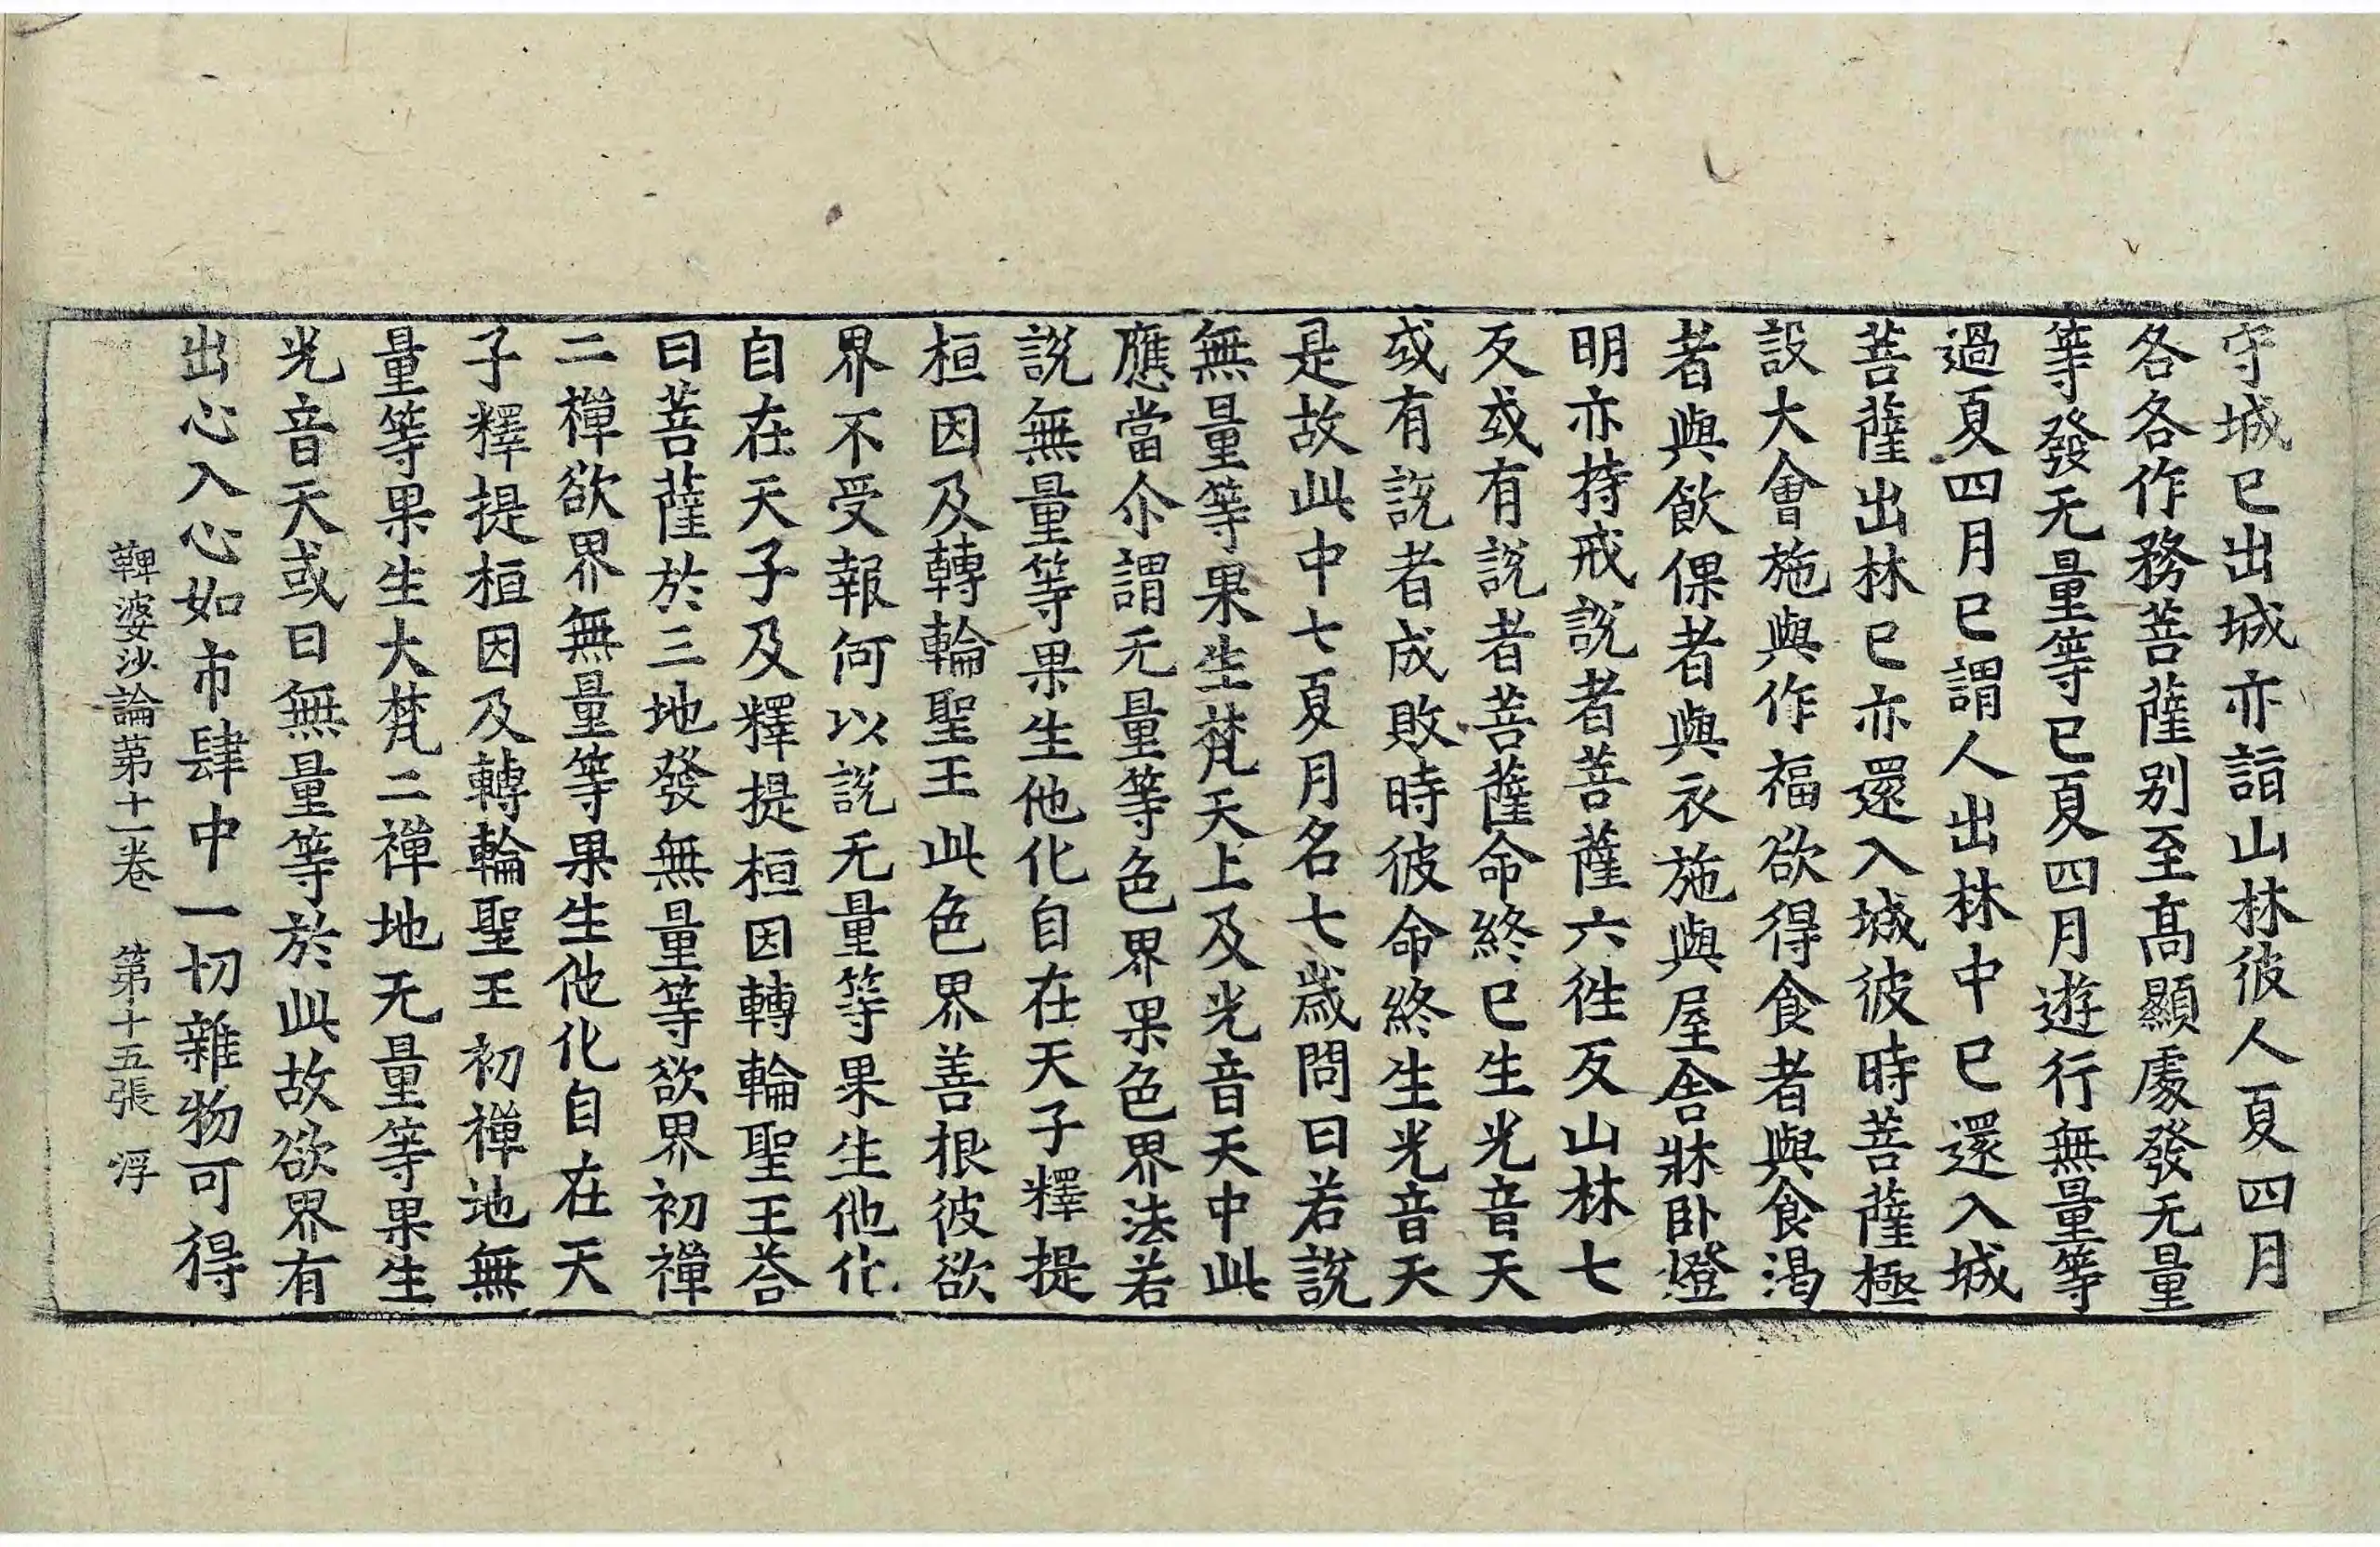 守城已出城亦詣山林彼人夏四月
各各作務菩薩别至髙顯處發无量
等發无量等已夏四月遊行無量等
過夏四月已謂人出林中已還入城
菩薩出林已亦還入城彼時菩薩極
設大會施與作福欲得食者與食渴
者與飲倮者與衣施與屋舎牀卧燈
明亦持戒說者菩薩六徃反山林七
反或有說者菩薩命終已生光音天
或有說者成敗時彼命終生光音天
是故此中七夏月名七歲問曰若說
無量等果生梵天上及光音天中此
應當尒謂无量等色界果色界法若
說無量等果生他化自在天子釋提
桓因及轉輪聖王此色界善根彼欲
界不受報何以說无量等果生他化
自在天子及釋提桓因轉輪聖王荅
曰菩薩於三地發無量等欲界初禪
二禪欲界無量等果生他化自在天
子釋提桓因及轉輪聖王初禪地無
量等果生大梵二禪地无量等果生
光音天或曰無量等於此故欲界有
出心入心如市肆中一切雜物可得
鞞婆沙論苐十一卷 第十五張 浮